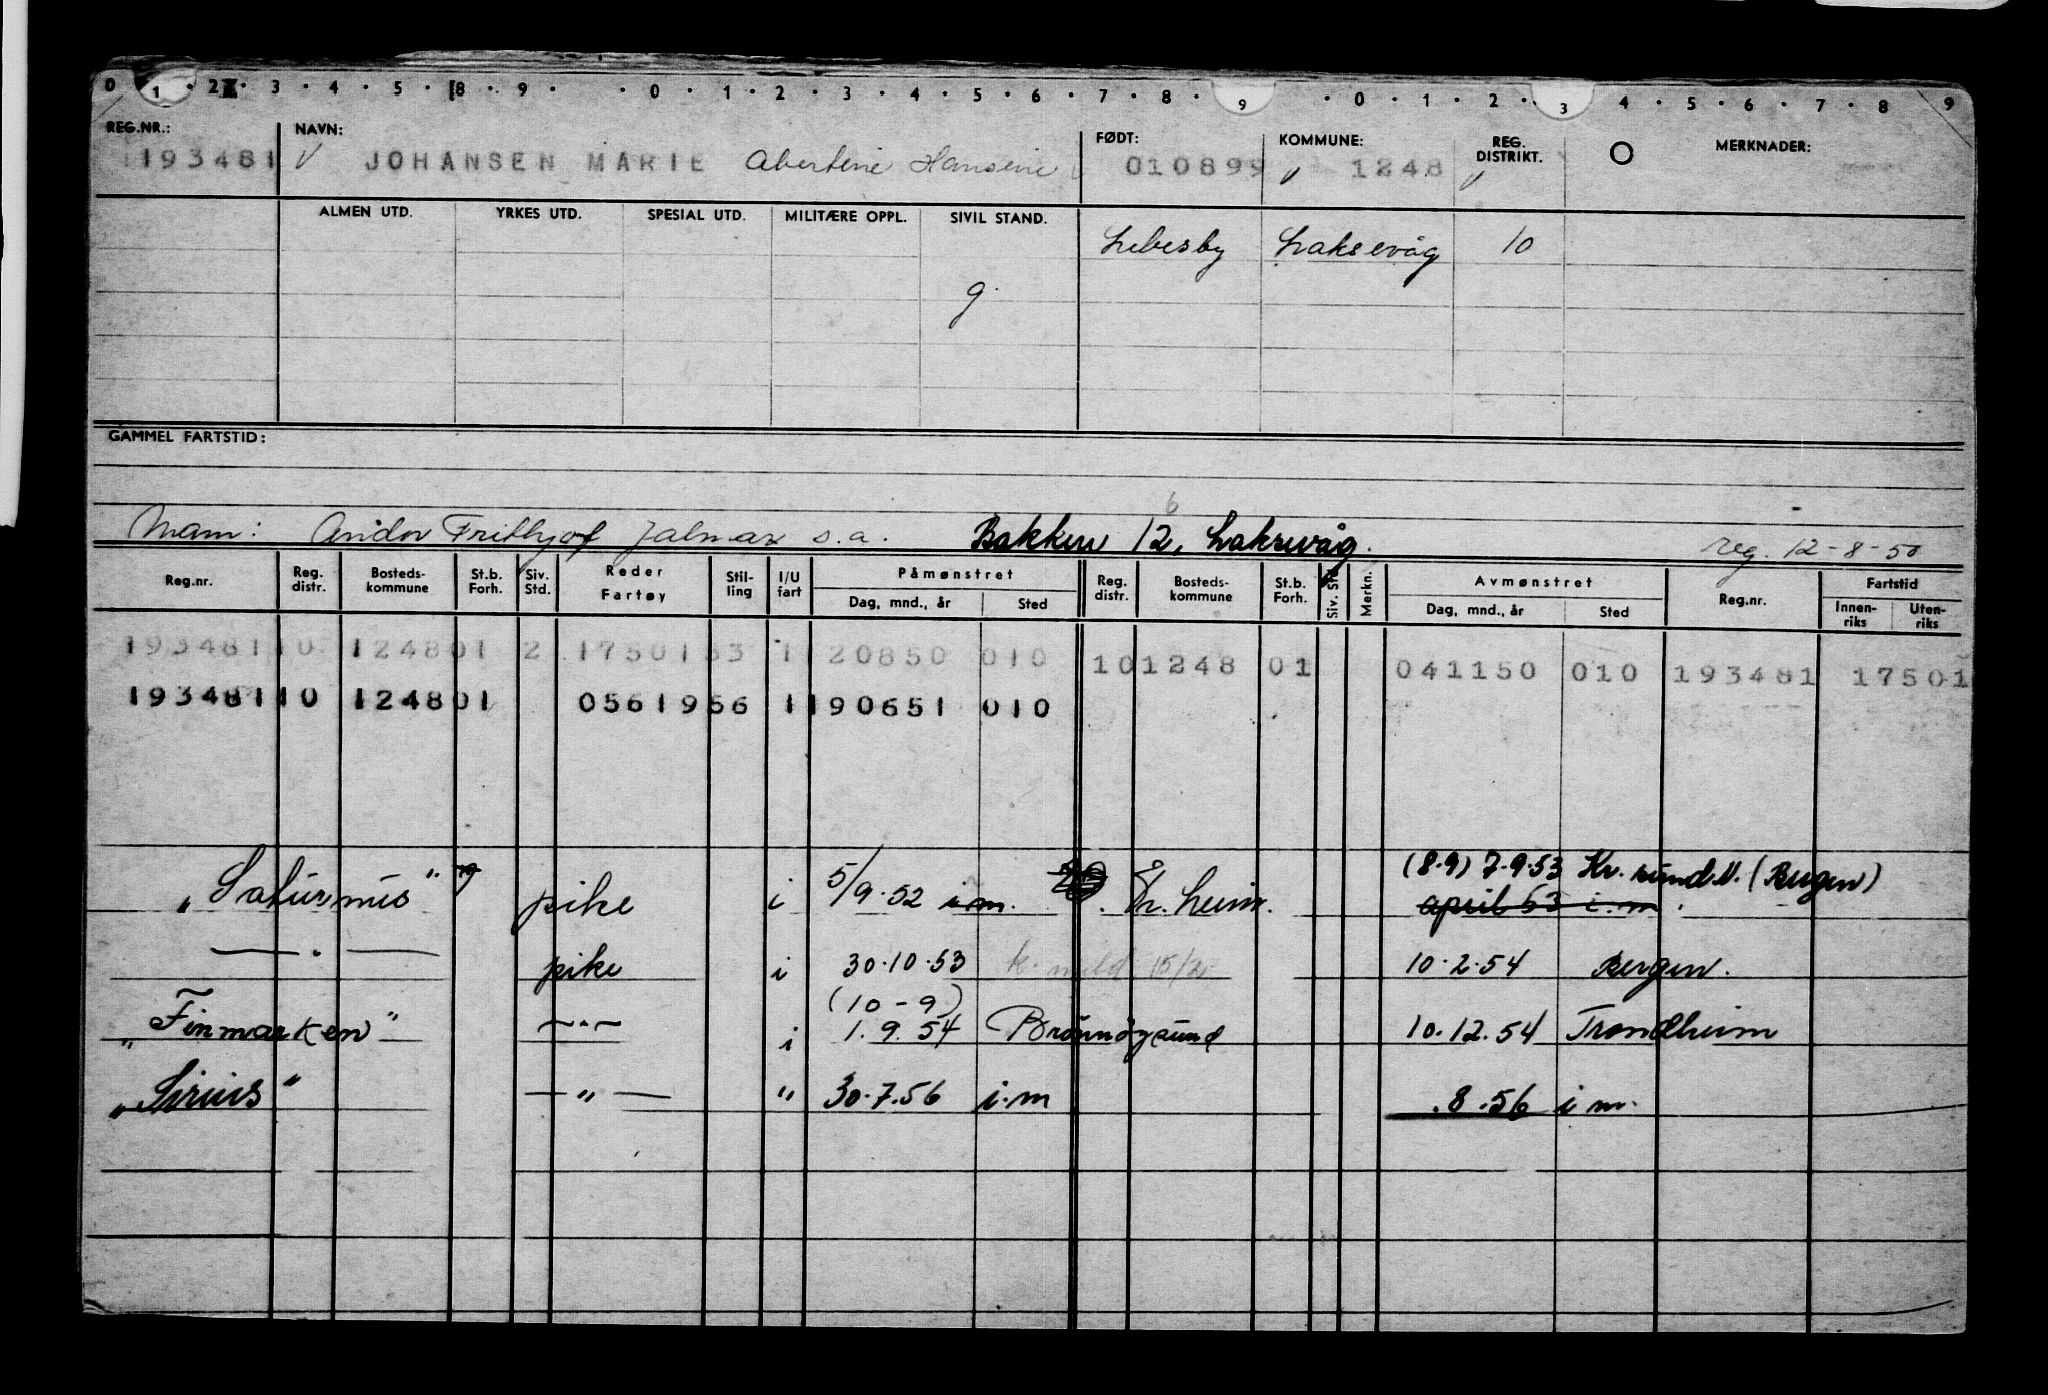 0 1 2 3 4 5 8 9 0 1 2 3 4 5 6 7 8 9 0 1 2 3 4 5 6 7 8 9
REG.NR.: NAVN: FØDT: KOMMUNE: REG. DISTRIKT. MERKNADER:
193481 V JOHANSEN MARIE Abertine Hansine 010899 V 1248 V O
ALMEN UTD. YRKES UTD. SPESIAL UTD. MILITÆRE OPPL. SIVIL STAND.
Lebesby Laksevåg 10
g.
GAMMEL FARTSTID:
6
Mann: Andor Frithjof Jalmar s.a. Bakken 12, Laksevåg. reg. 12-8-50
Reg.nr. Reg. distr. Bosteds-kommune St.b. Forh. Siv. Std. Reder Fartøy Stil-ling I/U fart Påmønstret Dag, mnd., år Sted Reg. distr. Bosteds-kommune St.b. Forh. Siv. Std. Merkn. Avmønstret Dag, mnd., år Sted Reg.nr. Fartstid Innen-riks Uten-riks
193481 10 1248 01 2 1750153 1 120850 010 10 1248 01 041150 010 193481 17501
193481 10 1248 01 0561956 1 190651 010
(8.9) 7.9.53 Kr.sund.N. (Bergen)
"Saturnus" pike i 5/9.52 i.m. Tr.heim. april 53 i.m.
— " — pike i 30.10.53 k. meld. 15/2 10.2.54 Bergen.
(10-9)
"Finmarken" —"— i 1.9.54 Brönnöysund 10.12.54 Trondheim
"Sirius" —"— " 30.7.56 i.m .8.56 i m.